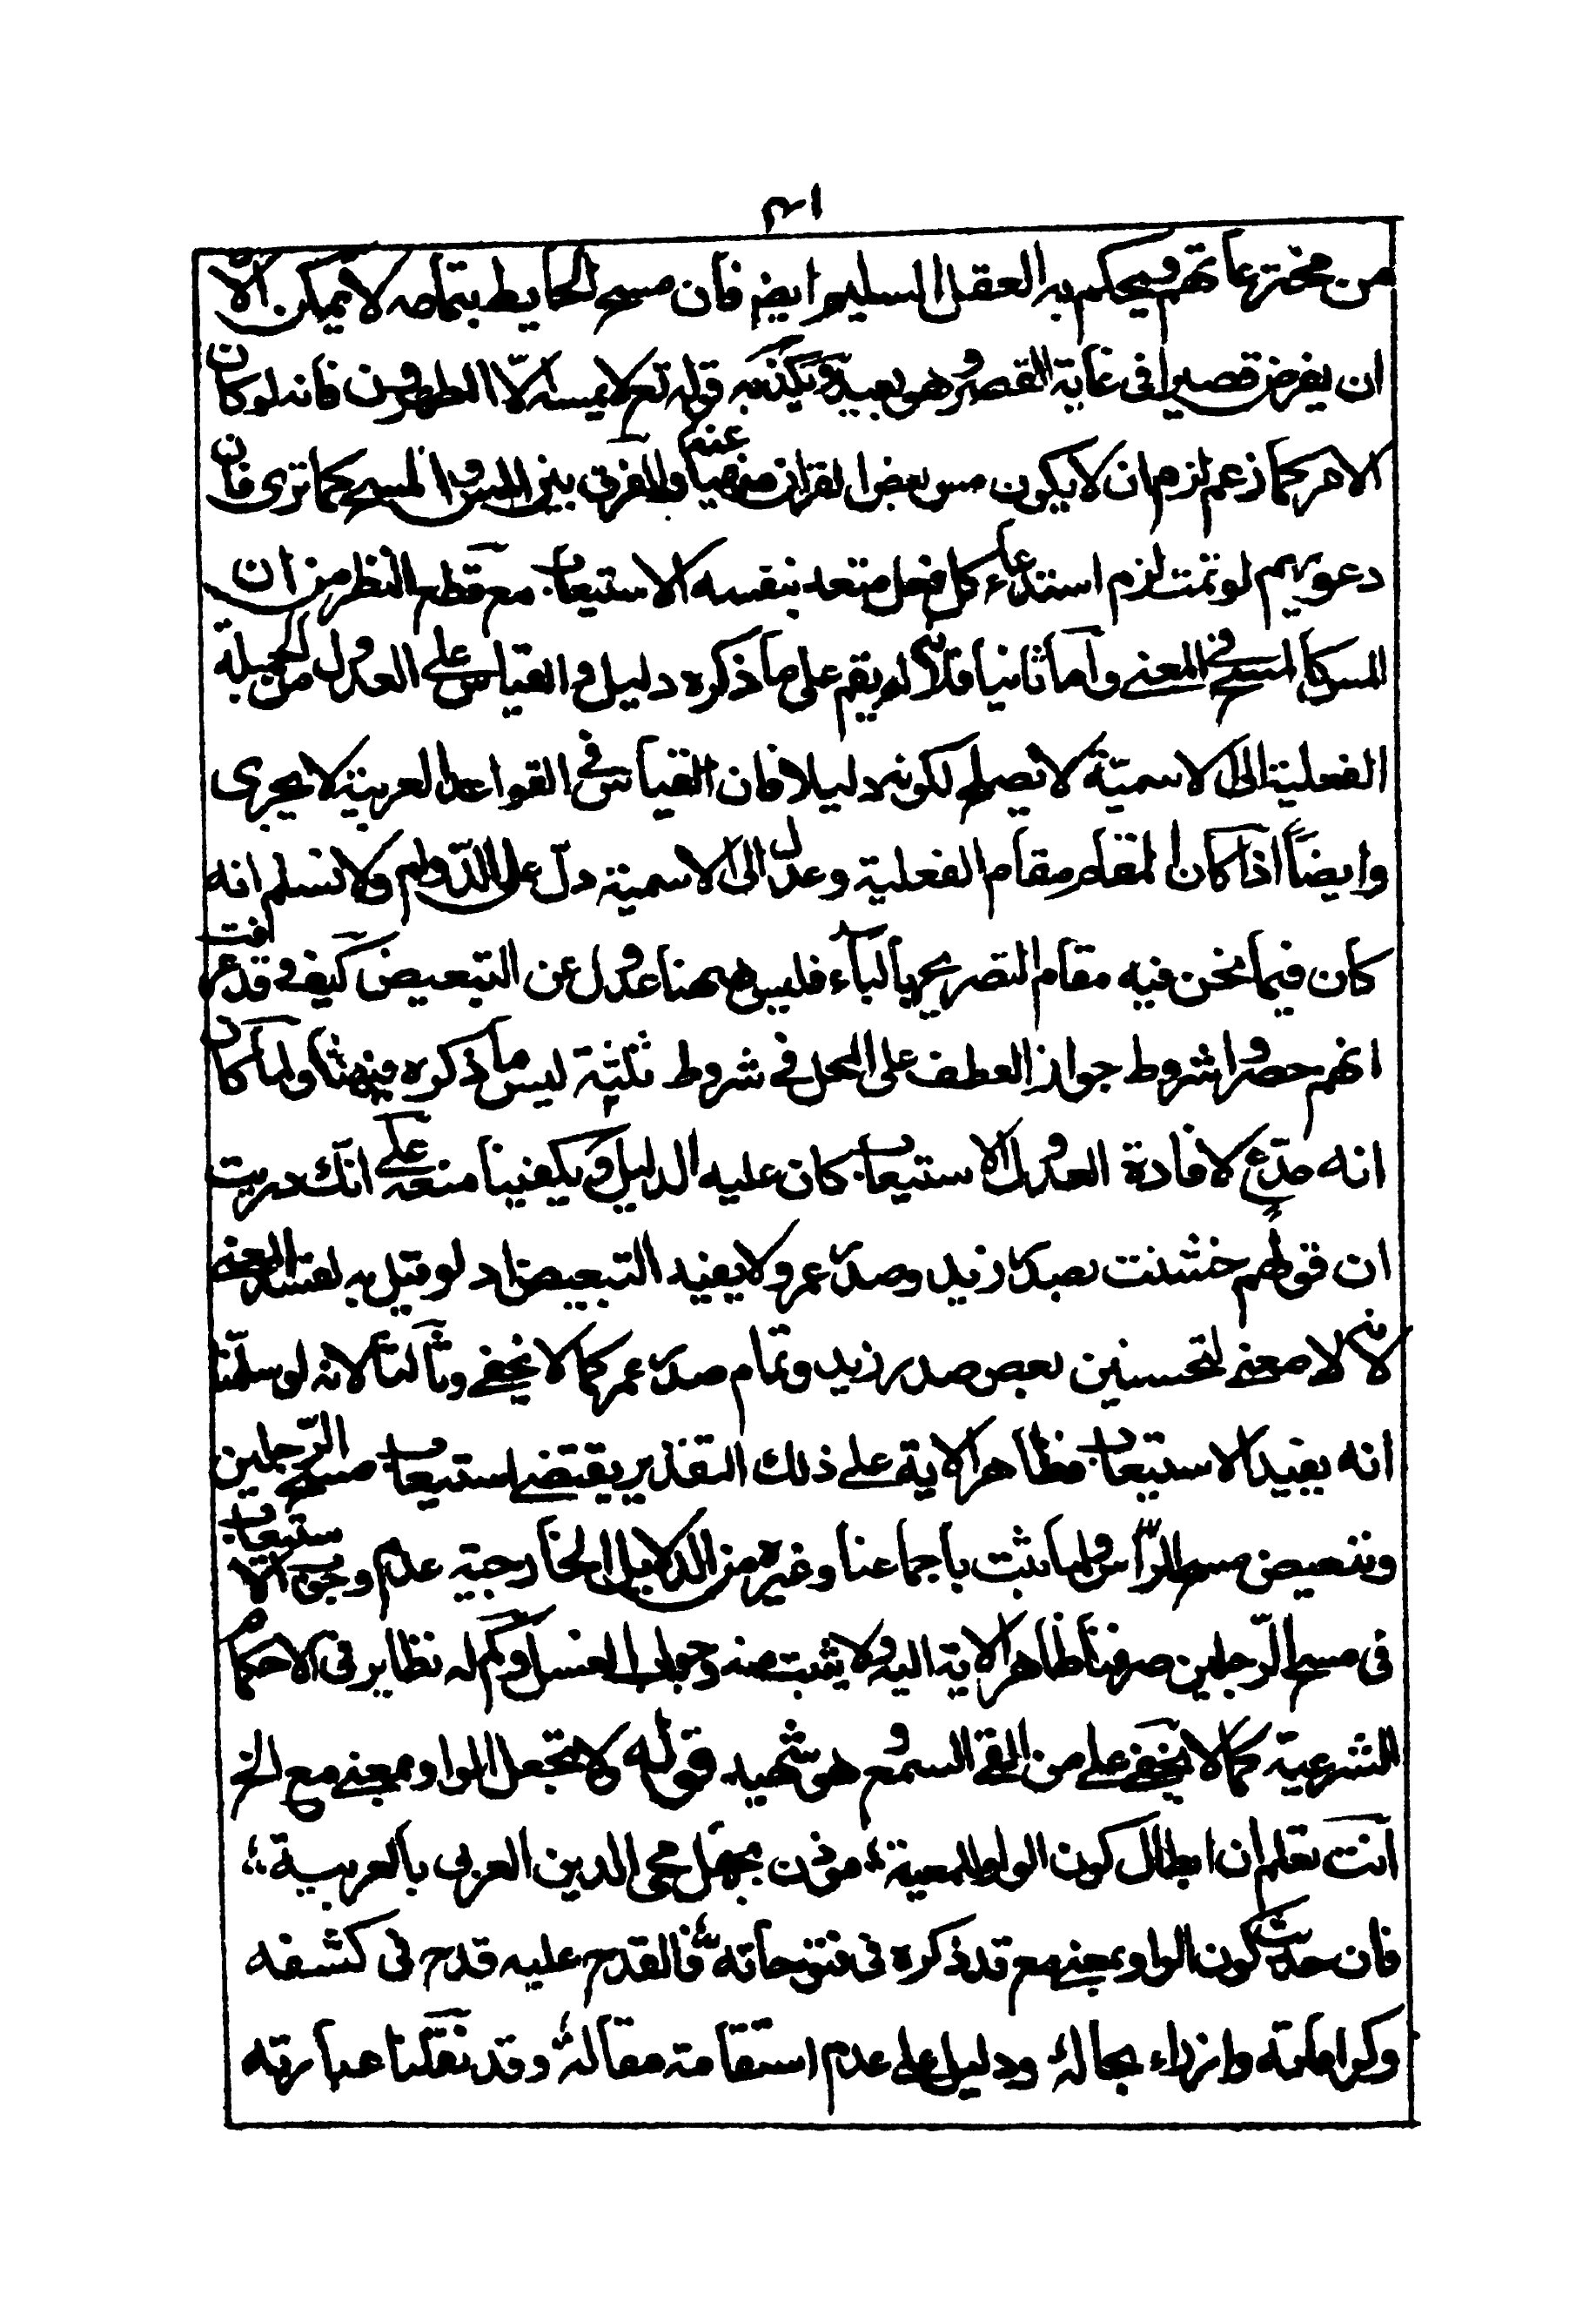 ١٣
من مخترعاتهم ويحكم به العقل السليم ايضا فان مسح الحايط بتمامه لا يمكن الّا
ان يفرض قصيرا فى غاية القصر وهو بعيد ويكذبه قوله تع لا يمسه الّا المطهرون فانه لو كان
الامر كما زعم لزم ان لا يكون مس بعض القران منهيا عنه والفرق بين المس والمسح كما ترى فان
دعويهم لو تمت لزم استدعاء كل فعل متعد بنفسه الاستيعاب مع قطع النظر من ان
المس كالمسح فى المعنى وامّا ثانيا فلانه لم يقم على ما ذكره دليل والقياس على العدول من الجملة
الفعلية الى الاسمية لا يصلح لكونه دليلا فان القياس فى القواعد العربية لا يجرى
وايضاً اذا كان المقام مقام الفعلية وعدل الى الاسمية دلّ على الدّوام ولا نسلم انه
كان فيما نحن فيه مقام التصريح بالباء فليس ههنا عدول عن التبعيض كيف وقد عرفت
انهم حصروا شروط جواز العطف على المحل فى شروط ثلثة ليس ما ذكره منها ولما كان
انه مدّع لافادة العدول الاستيعاب كان عليه الدليل ويكفينا منعه على انّك دريت
ان قولهم خشنت بصدر زيد وصدر عمرو لا يفيد التبعيض اذ لو قيل به لفسد المعنى
لانه لا معنى لتحسين بعض صدر زيد وتمام صدر عمرو كما لا يخفى وثالثا لانه لو سلمنا
انه يفيد الاستيعاب فظاهر الاية على ذلك التقدير يقتضى استيعاب مسح الرّجلين
وتبعيض مسح الرّأس ولما ثبت باجماعنا وغيره من الدلايل الخارجية عدم وجوب الاستيعاب
فى مسح الرّجلين صرفنا ظاهر الاية اليه ولا يثبت منه وجوب الغسل وكم له نظاير فى الاحكام
الشرعية كما لا يخفى على من القى السمع وهو شهيد قوله لا تجعل الواو بمعنى مع الخ
انت تعلم ان ابطال كون الواو للمعية موذن بجهل محى الدين العربى بالعربية
فان حديث كون الواو بمعنى مع قد ذكره فى فتوحاته فالقدح عليه قدح فى كشفه
وكراماته وازراء بحاله ودليل على عدم استقامة مقاله وقد نقلنا عبارته